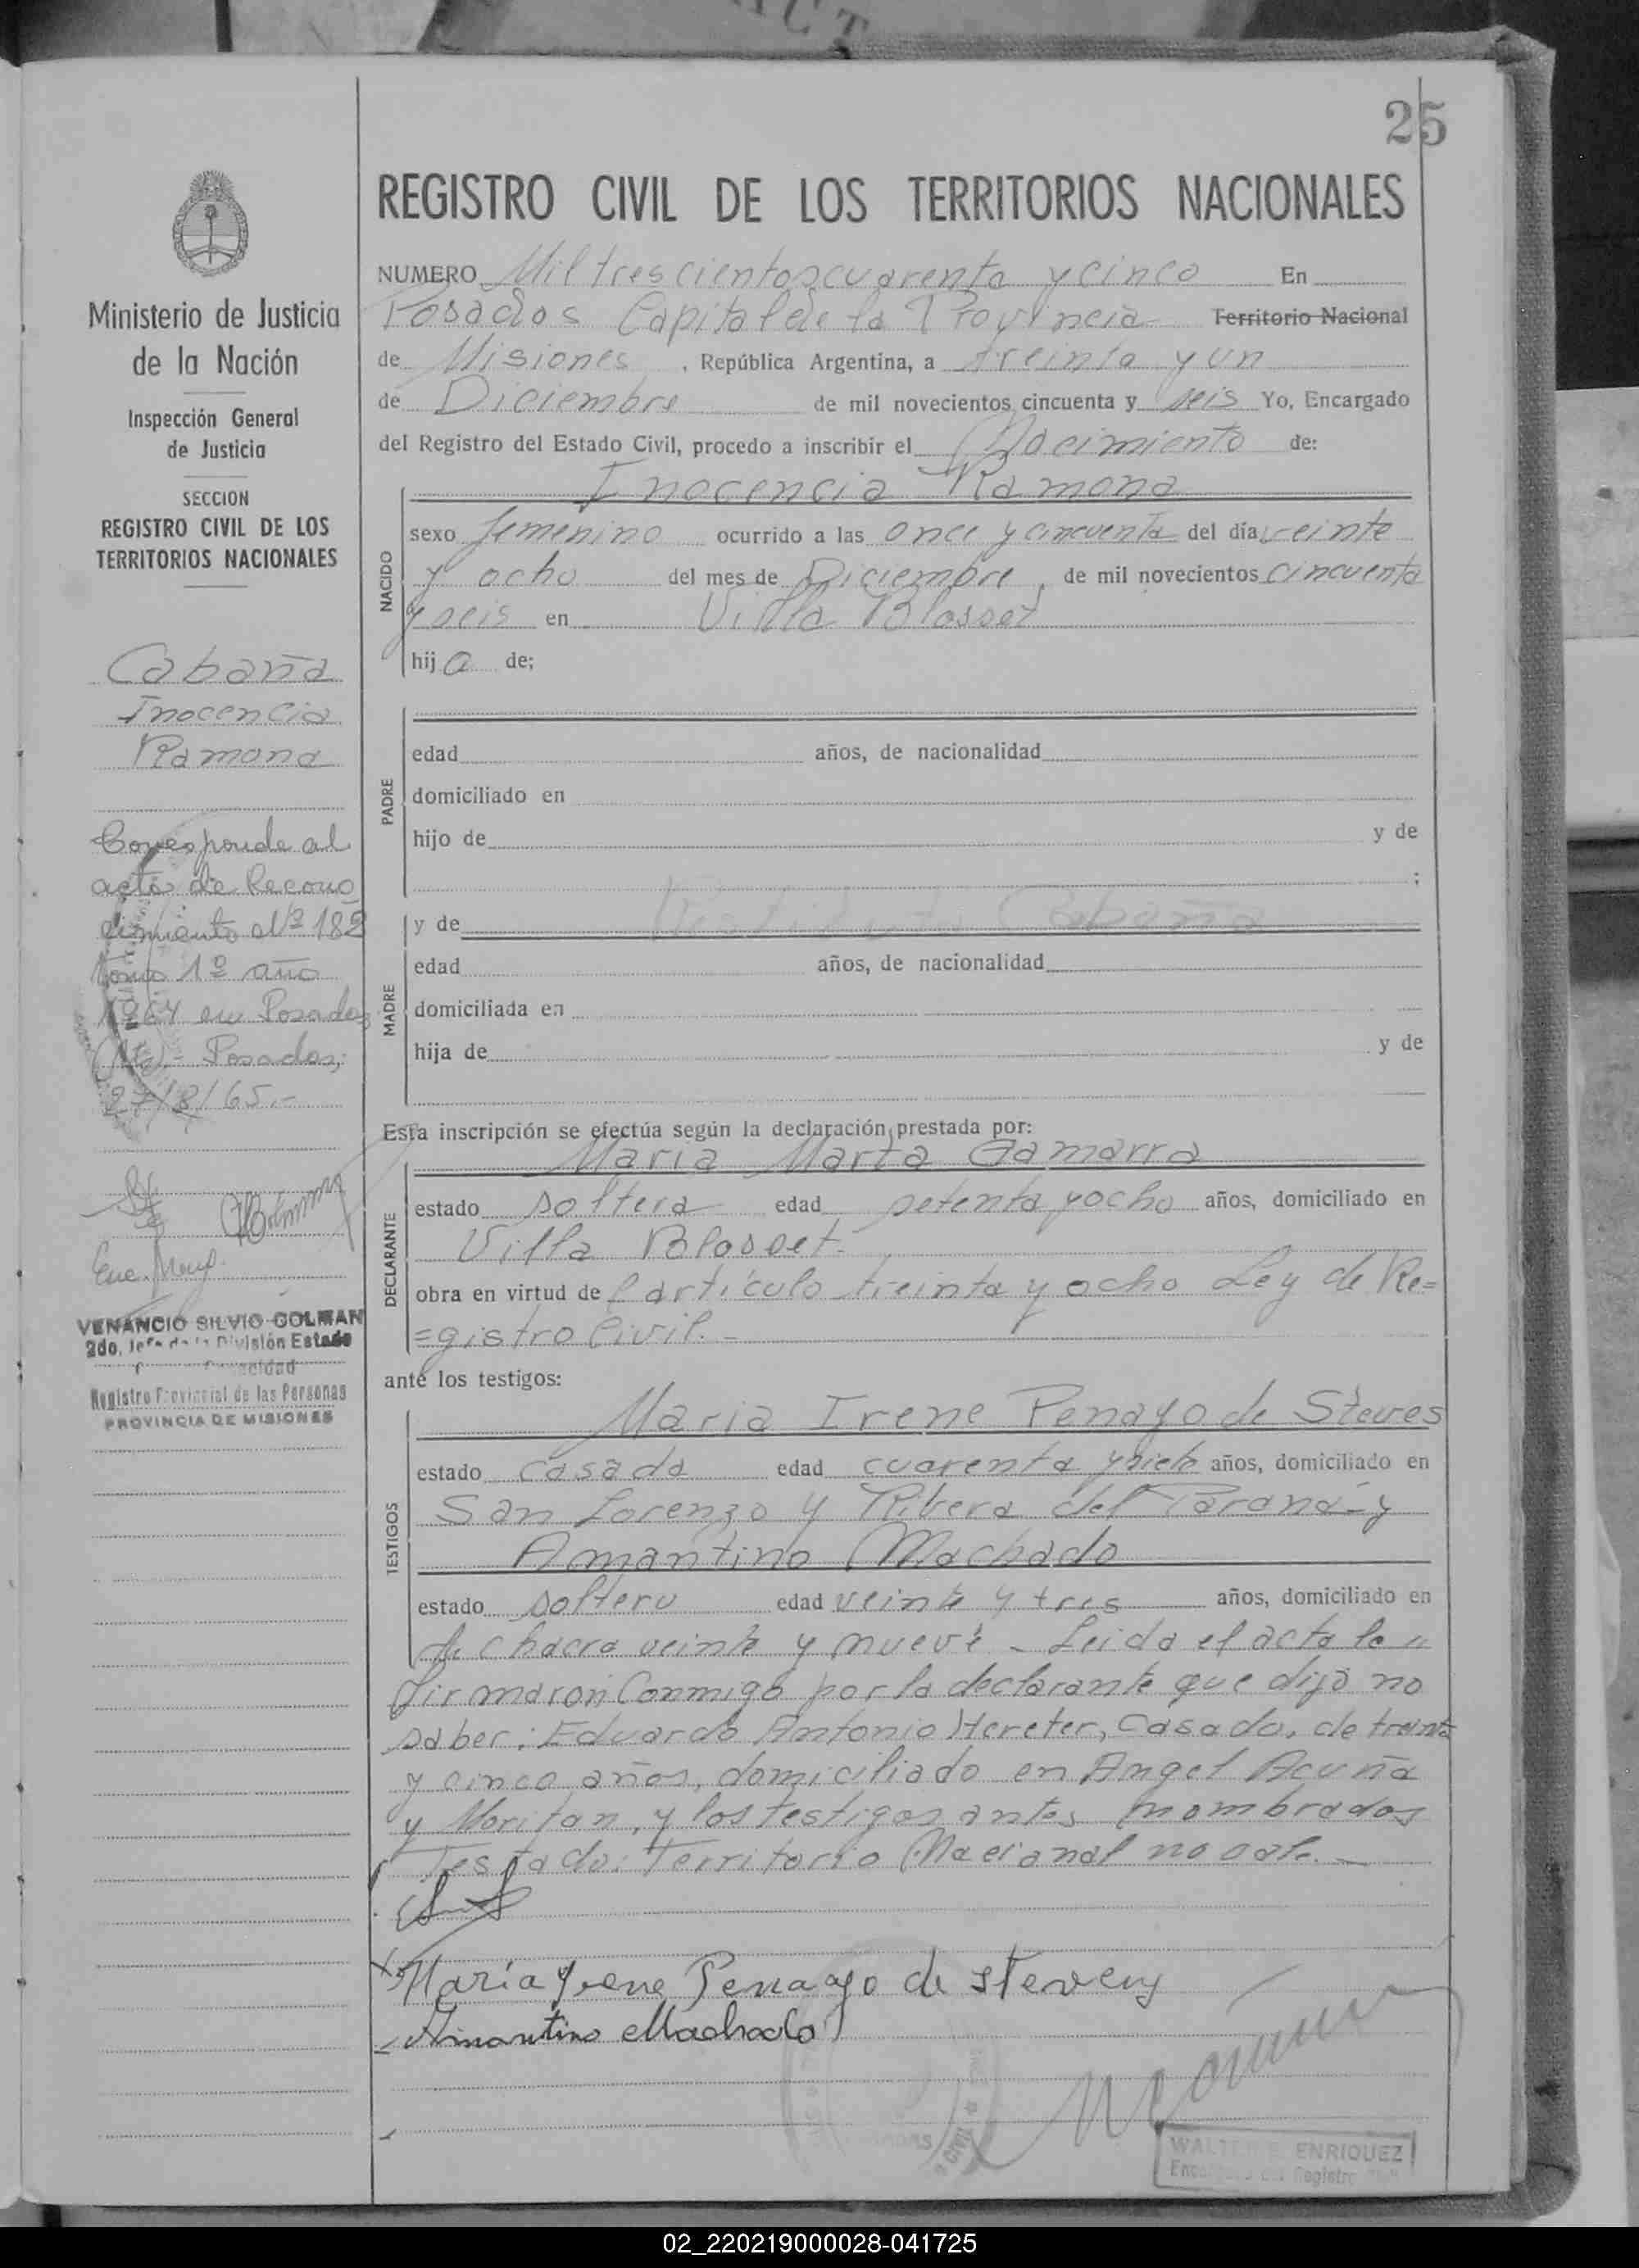 25
REGISTRO CIVIL DE LOS TERRITORIOS NACIONALES
NUMERO Mil trescientos cuarenta y cinco En
Posadas Capital de la Provincia Territorio Nacional
de Misiones, República Argentina, a treinta y un
de Diciembre de mil novecientos cincuenta y seis Yo, Encargado
del Registro del Estado Civil, procedo a inscribir el Nacimiento de:
Inocencia Ramona
NACIDO
sexo femenino ocurrido a las once y cincuenta del día veinte
y ocho del mes de Diciembre, de mil novecientos cincuenta
y seis en Villa Blosset
hija de;
PADRE
edad años, de nacionalidad
domiciliado en
hijo de y de
;
MADRE
y de Restituta Cabaña
edad años, de nacionalidad
domiciliada en
hija de y de
Esta inscripción se efectúa según la declaración prestada por:
Maria Marta Gamarra
DECLARANTE
estado soltera edad setenta y ocho años, domiciliado en
Villa Blosset.
obra en virtud del artículo treinta y ocho Ley de Re=
=gistro Civil.-
ante los testigos:
Maria Irene Penayo de Steves
TESTIGOS
estado casada edad cuarenta y siete años, domiciliado en
San Lorenzo y Ribera del Paraná- y
Amantino Machado
estado soltero edad veinte y tres años, domiciliado en
chacra veinte y nueve - Leida el acta la
firmaron Conmigo por la declarante que dijo no
saber: Eduardo Antonio Hereter, Casado, de treinta
y cinco años, domiciliado en Angel Acuña
y Moritan, y los testigos antes nombrados
Testado: Territorio Nacional no vale.-
Maria Yrene Penayo de Stevens
Amantino Machado
WALTER E. ENRIQUEZ
Encargado del Registro Civil
Ministerio de Justicia
de la Nación
Inspección General
de Justicia
SECCION
REGISTRO CIVIL DE LOS
TERRITORIOS NACIONALES
Cabaña
Inocencia
Ramona
Corresponde al
acta de Recono
cimiento Nº 182
tomo 1º año
1964 en Posadas
Posadas,
27/8/65.-
VENANCIO SILVIO GOLMAN
2do. Jefe de la División Estado
y Capacidad
Registro Provincial de las Personas
PROVINCIA DE MISIONES
02_220219000028-041725